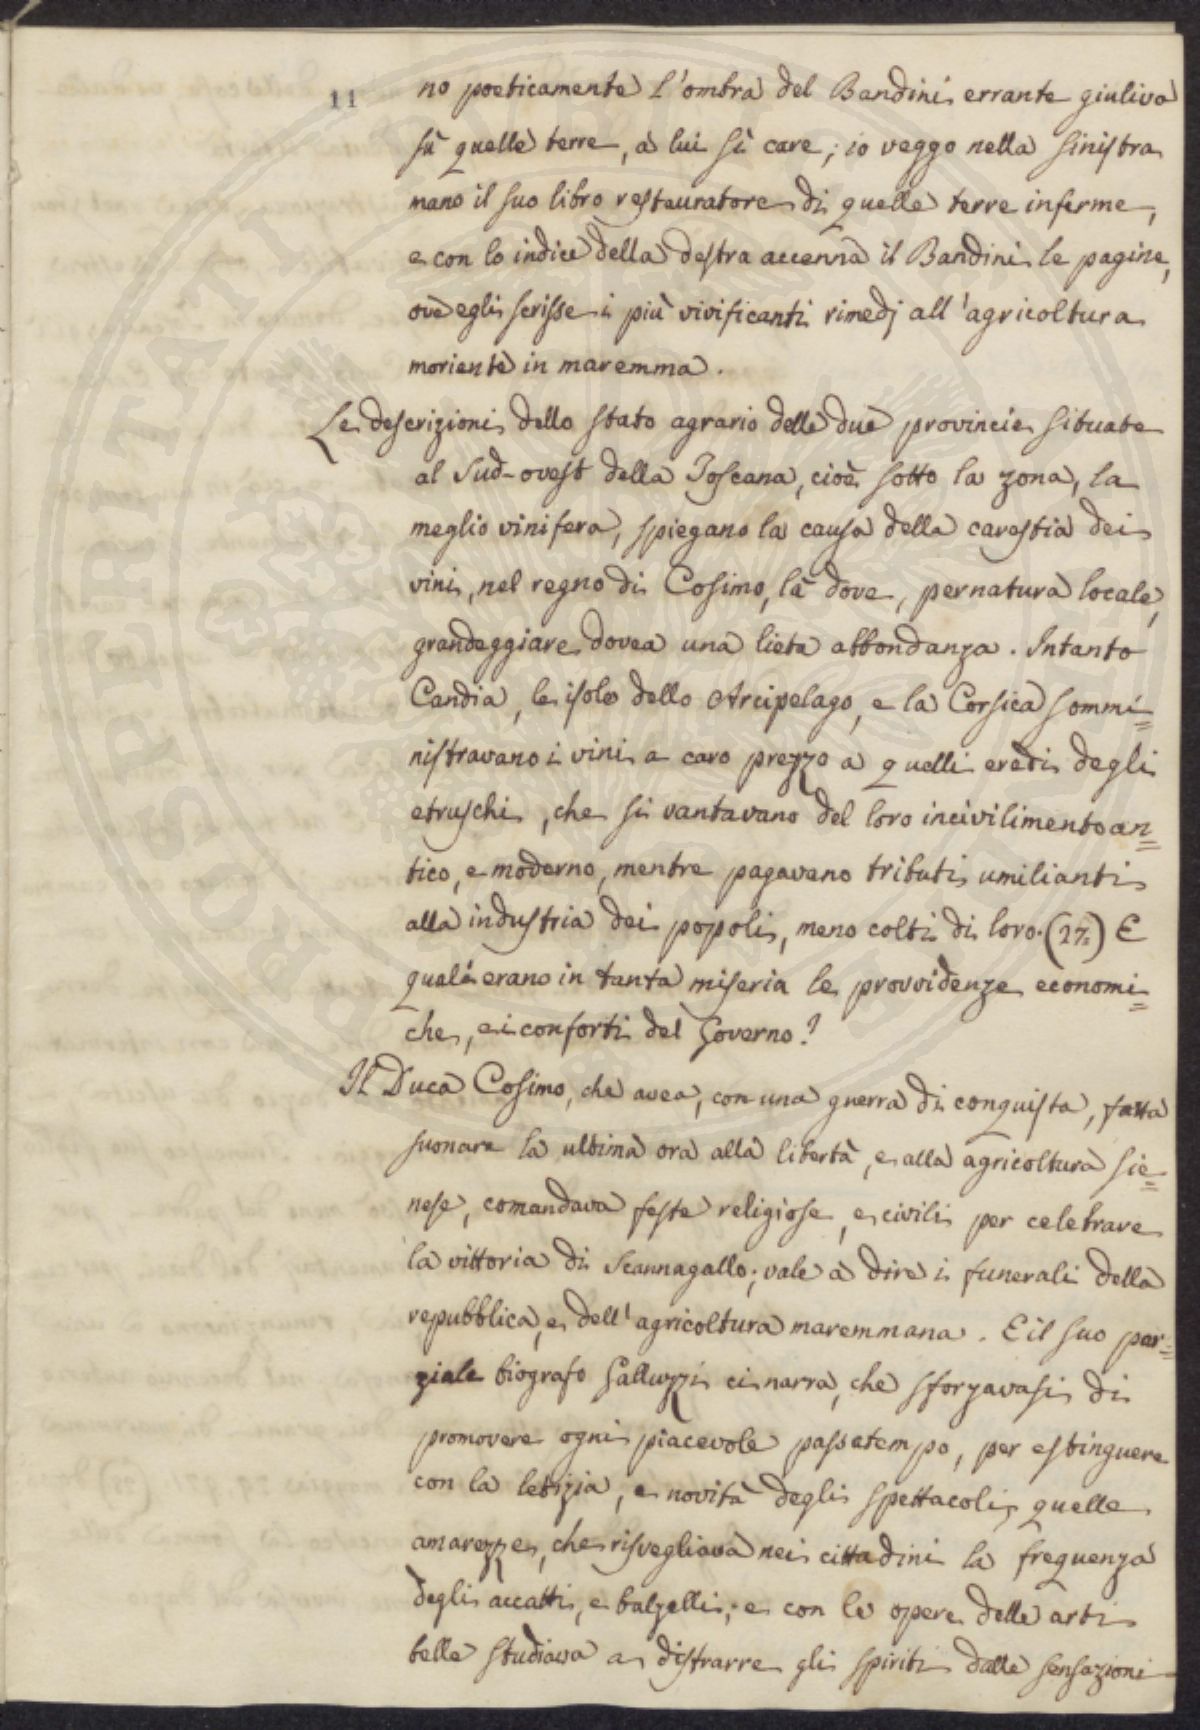 11
no poeticamente l'ombra del Bandini errante giuliva
sù quelle terre, a lui sì care; io veggo nella sinistra
mano il suo libro restauratore di quelle terre inferme,
e con lo indice della destra accenna il Bandini le pagine,
ove egli scrisse i più vivificanti rimedj all'agricoltura
moriente in maremma.
Le descrizioni dello stato agrario delle due provincie situate
al Sud-ovest della Toscana, cioè sotto la zona, la
meglio vinifera, spiegano la causa della carestia dei
vini, nel regno di Cosimo, là dove, per natura locale,
grandeggiare dovea una lieta abbondanza. Intanto
Candia, le isole dello Arcipelago, e la Corsica sommi=
nistravano i vini a caro prezzo a quelli eredi degli
etruschi, che si vantavano del loro incivilimento an=
tico, e moderno, mentre pagavano tributi umilianti
alla industria dei popoli, meno colti di loro. (27.) E
quali erano in tanta miseria le provvidenze economi=
che, e i conforti del Governo?
Il Duca Cosimo, che avea, con una guerra di conquista, fatta
suonare la ultima ora alla libertà, e alla agricoltura sie=
nese, comandava feste religiose, e civili per celebrare
la vittoria di Scannagallo; vale a dire i funerali della
repubblica, e dell'agricoltura maremmana. E il suo par=
ziale biografo Galluzzi ci narra, che sforzavasi di
promovere ogni piacevole passatempo, per estinguere
con la letizia, e novità degli spettacoli, quelle
amarezze, che risvegliava nei cittadini la frequenza
degli accatti, e balzelli; e con le opere delle arti
belle studiava a distrarre gli spiriti dalle sensazioni
PROSPERITATI PUBLICAE